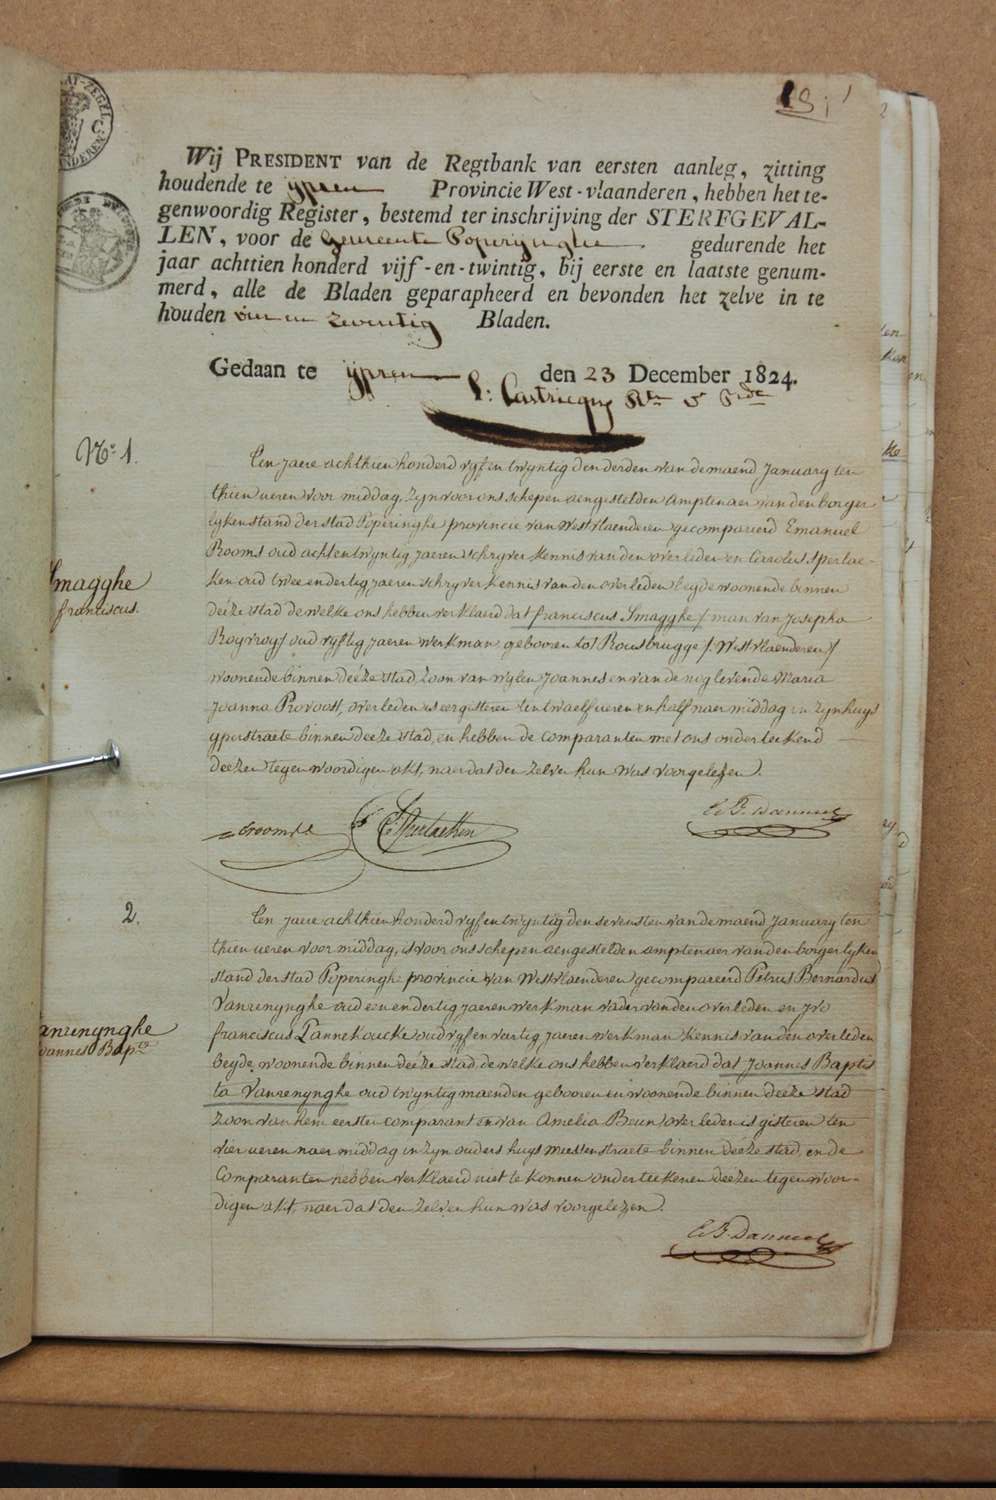 Wij PRESIDENT van de Regtbank van eersten aanleg, zitting
houdende te ijpren Provincie West-vlaanderen, hebben het te-
genwoordig Register, bestemd ter inschrijving der STERFGEVAL-
LEN, voor de Gemeente Poperijnghe gedurende het
jaar achttien honderd vijf-en-twintig, bij eerste en laatste genum-
merd, alle de Bladen geparapheerd en bevonden het zelve in te
houden vier en zeventig Bladen.
Gedaan te ijpren den 23 December 1824.
No. 1.
Een jaere achthien honderd vyf en twyntig den derden van de maend January ten
thien ueren voor middag, zyn voor ons schepen aengestelden amptenaer van den borger
lyken stand der stad Poperinghe provincie van Westvlaenderen gecompareerd Emanuel
Rooms oud acht en twyntig jaeren schryver kennis van den overleden en Carolus Sperlae-
ken oud twee en dertig jaeren schryver kennis van den overleden beyde woonende binnen
Smagghe
franciscus.
deéze stad de welke ons hebben verklaerd dat franciscus Smagghe / man van Josepha
Rogvroy / oud vyftig jaeren werkman gebooren tot Rousbrugge /: Westvlaenderen /
woonende binnen deéze stad, zoon van wylen Joannes en van de nog levende Maria
Joanna Provoost, overleden is eergisteren ten twaelf ueren en half naer middag in zyn huys
yperstraete binnen deeze stad, en hebben de comparanten met ons onderteekend
deezen tegenwoordigen akt, naer dat den zelven hun was voorgelezen.
E Rooms
C Sperlaeken
2.
Een jaere achthien honderd vyf en twyntig den sevensten van de maend January ten
thien ueren voor middag, is voor ons schepen aengestelden amptenaer van den borgerlyken
stand der stad Poperinghe provincie van Westvlaenderen gecompareerd Petrus Bernardus
Vanrenynghe oud een en dertig jaeren werkman vader van den overleden en Ivo
Vanrenynghe
Joannes Bapta
franciscus Pannekoucke oud vyf en vartig jaeren werkman kennis van den overleden
beyde woonende binnen deéze stad de welke ons hebben verklaerd dat Joannes Baptis
ta Vanrenynghe oud twyntig maenden gebooren en woonende binnen deéze stad
zoon van hem eersten comparant en van Amelia Beun, overleden is gisteren ten
vier ueren naer middag in zyn ouders huys miestenstraete binnen deéze stad, en de
Comparanten hebben verklaerd niet te konnen onderteekenen deezen tegenwoor-
digen akt, naer dat den zelven hun was voorgelezen.